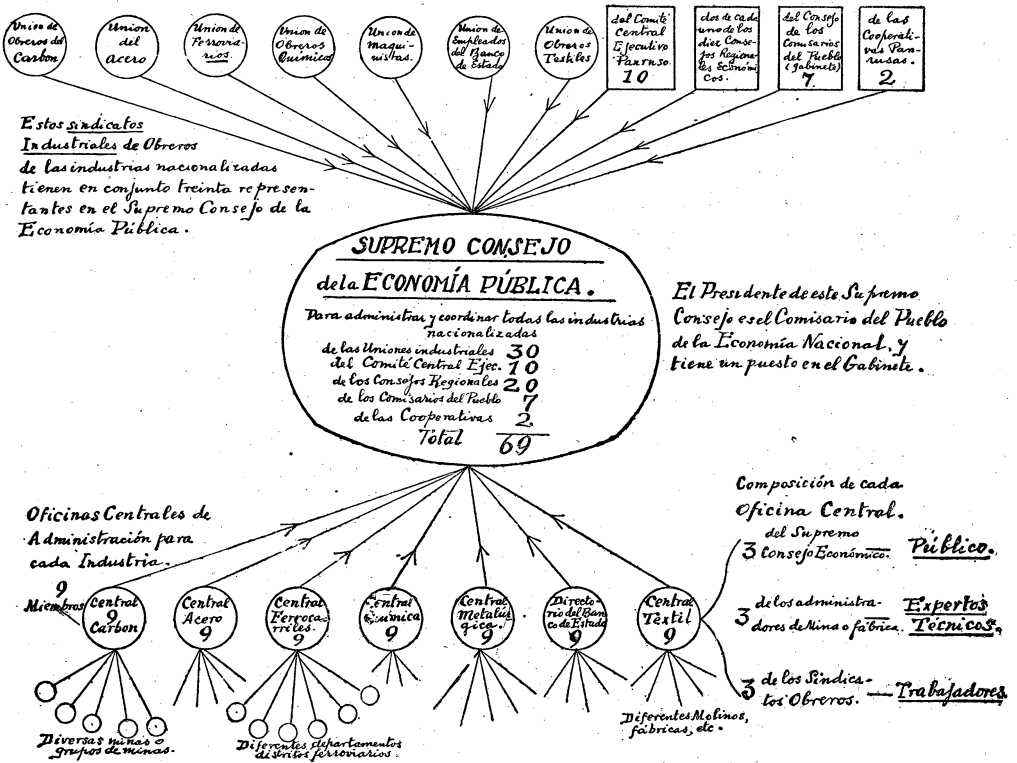 Union de
Obreros del
Carbon
Union
del
Acero
Union de
Ferrovia-
rios.
Union de
Obreros
Químicos
Union de
Maqui-
nistas.
Union de
Empleados
del Banco
de Estado
Union de
Obreros
Textiles
del Comité
Central
Ejecutivo
Panruso
10
dos de cada
uno de los
diez Conse-
jos Regiona-
les Económi-
cos.
del Consejo
de los
Comisarios
del Pueblo
(gabinete)
7
de las
Cooperati-
vas Pan-
rusas.
2
Estos sindicatos
Industriales de Obreros
de las industrias nacionalizadas
tienen en conjunto treinta represen-
tantes en el Supremo Consejo de la
Economía Pública.
SUPREMO CONSEJO
de la ECONOMÍA PÚBLICA.
Para administrar y coordinar todas las industrias
nacionalizadas
de las Uniones industriales 30
del Comité Central Ejec. 10
de los Consejos Regionales 20
de los Comisarios del Pueblo 7
de las Cooperativas 2
Total 69
El Presidente de este Supremo
Consejo es el Comisario del Pueblo
de la Economía Nacional, y
tiene un puesto en el Gabinete.
Oficinas Centrales de
Administración para
cada Industria.
9
Miembros
Central
9
Carbon
Central
Acero
9
Central
Ferroca-
rriles.
9
Central
Química
9
Central
Metalúr-
gica.
9
Directo-
rio del Ban
co de Estado
9
Central
Textil
9
Composición de cada
Oficina Central.
del Supremo
3 Consejo Económico. — Público.
3 de los administra-
dores de Mina o fábrica. Expertos
Técnicos.
3 de los Sindica-
tos Obreros. — Trabajadores
Diversas minas o
grupos de minas.
Diferentes departamentos
distritos ferroviarios.
Diferentes Molinos,
fábricas, etc.